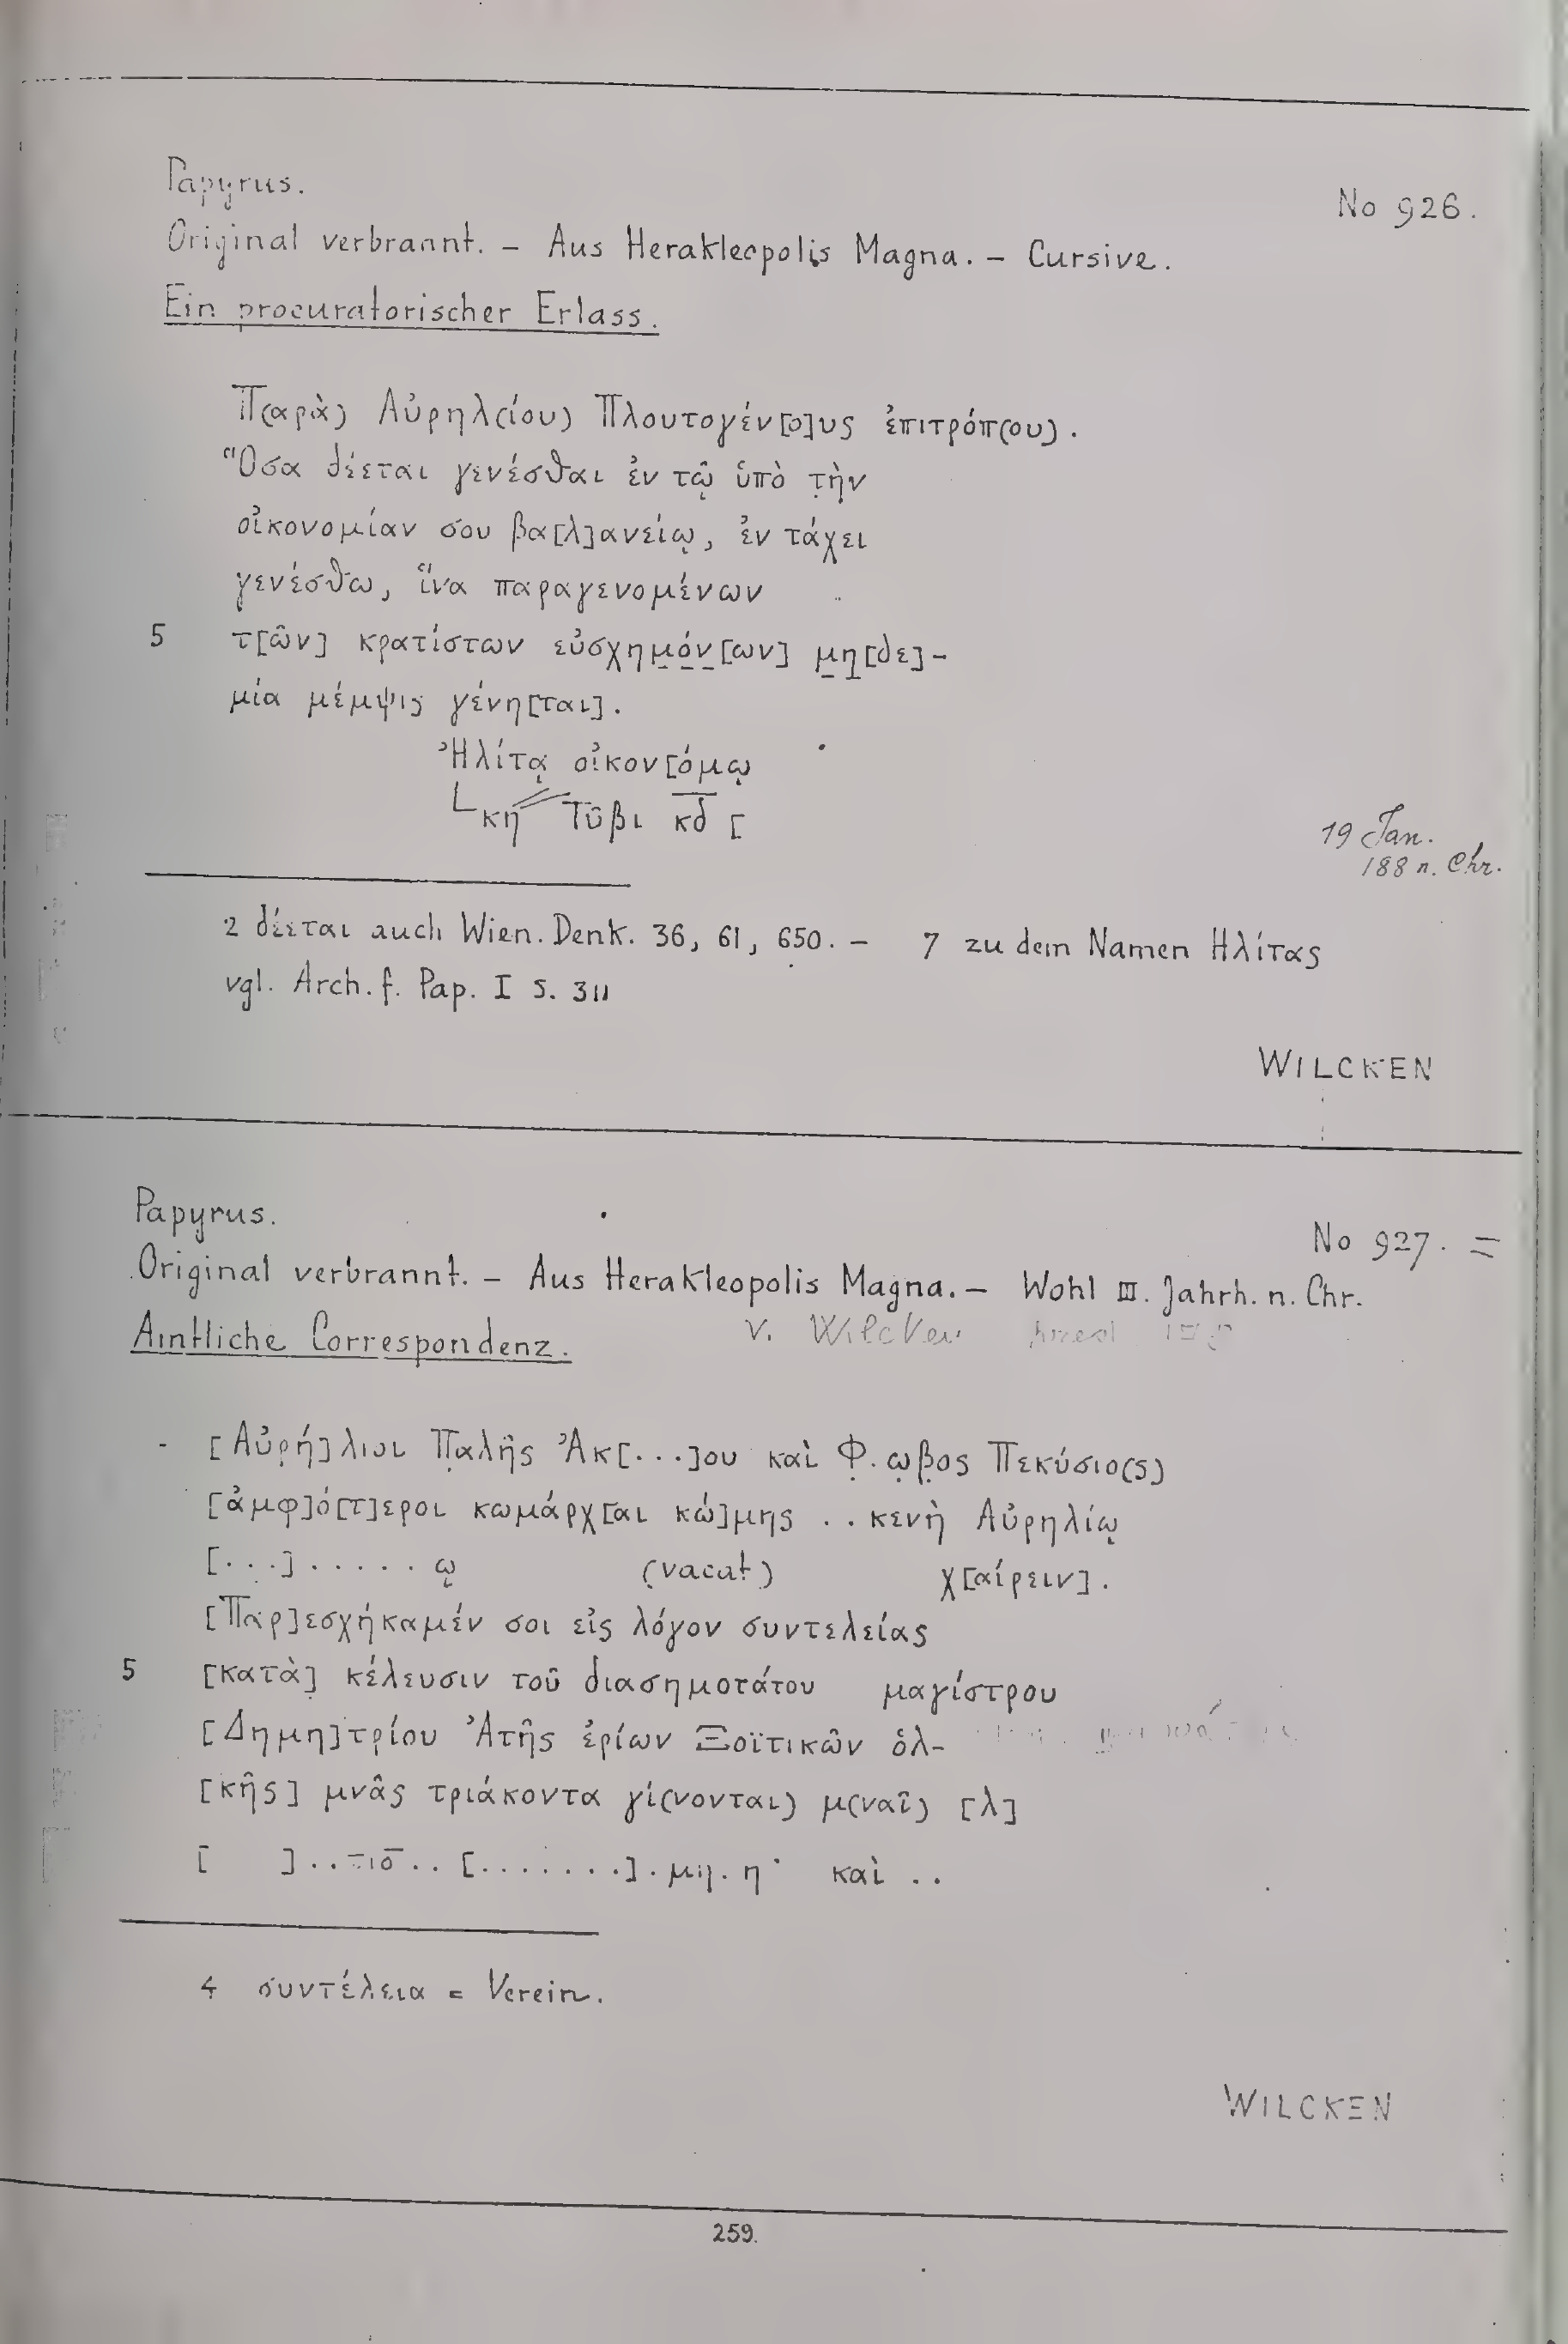 Papyrus.
No 926.
Original verbrannt. – Aus Herakleopolis Magna. – Cursive.
Ein procuratorischer Erlass.
Π(αρὰ) Αὐρηλ(ίου) Πλουτογέν[ο]υς ἐπιτρόπ(ου).
Ὅσα δέεται γενέσθαι ἐν τῷ ὑπὸ τ̣ὴν
οἰκονομίαν σου βα[λ]ανείῳ, ἐν τάχει
γενέσθω, ἵνα παραγενομένων
5 τ[ῶν] κρατίστων εὐσχημ̣ό̣ν̣[ων] μ̣η̣[δε]-
μία μέμψις γένη[ται].
Ἡλίτᾳ οἰκον[όμῳ
└κη// Τῦβι κ̅δ̅ [
19 Jan.
188 n. Chr.
2 δέεται auch Wien. Denk. 36, 61, 650. – 7 zu dem Namen Ηλίτας
vgl. Arch. f. Pap. I S. 311
WILCKEN
Papyrus.
No 927. =
Original verbrannt. – Aus Herakleopolis Magna. – Wohl III. Jahrh. n. Chr.
Amtliche Correspondenz.
v. Wilcken
- [Αὐρή]λιοι Π̣αλῆς Ἀκ[...]ου καὶ Φ̣.ω̣β̣ος Πεκύσιο(ς)
[ἀμφ]ό[τ]εροι κωμάρχ[αι κώ]μης ..κενὴ Αὐρηλίῳ
[...].....ῳ (vacat) χ[αίρειν].
[Παρ]εσχήκαμέν σοι εἰς λόγον συντελείας
5 [κατὰ] κέλευσιν τοῦ διασημοτάτου μαγίστρου
[Δημη]τρίου Ἀτῆς ἐρίων Ξοϊτικῶν ὁλ-
[κῆς] μνᾶς τριάκοντα γί(νονται) μ(ναῖ) [λ]
[ ]..πιο̅..[.......].μη.η˙ καὶ ..
4 συντέλεια = Verein.
WILCKEN
259.